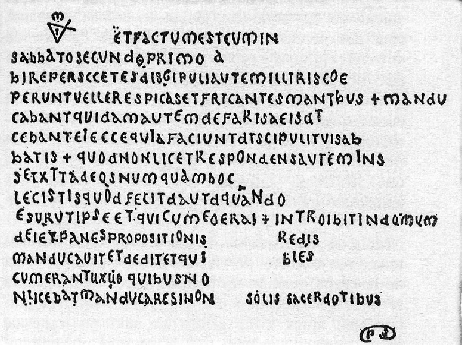 ETFACTUMESTEUMIN
SABBATOSECUNDOPRIMO A
BIREPERSCCETESDISGIPULIAUTEMILLIRISCOE
PERUNTVELLERESPICASETFRICANTESMANTBUS + MANDU
CABANTQUIDAMAUTEMDEFARISAEISDT
CEBANTEIECCEQUIAFACIUNTDTSCIPULITUISAB
BATIS + QUODNONLICETRESPONDENSAUTEMINS
SETXTTADEOSNUMQUAMHOC
LECISTISQUODFECITDAUTDQUANDO
ESURUTIPSEETQUICUMEOERAI + INTROIBITINDOMUM
DEIETPANESPROPOSITIONIS REDIS
MANDUCAUITETDEDITETQUI BLES
CUMERANTUXUO QUIBUSNO
NLICEBATMANDUCARESINON SOLIS SACERDOTIBUS
PS